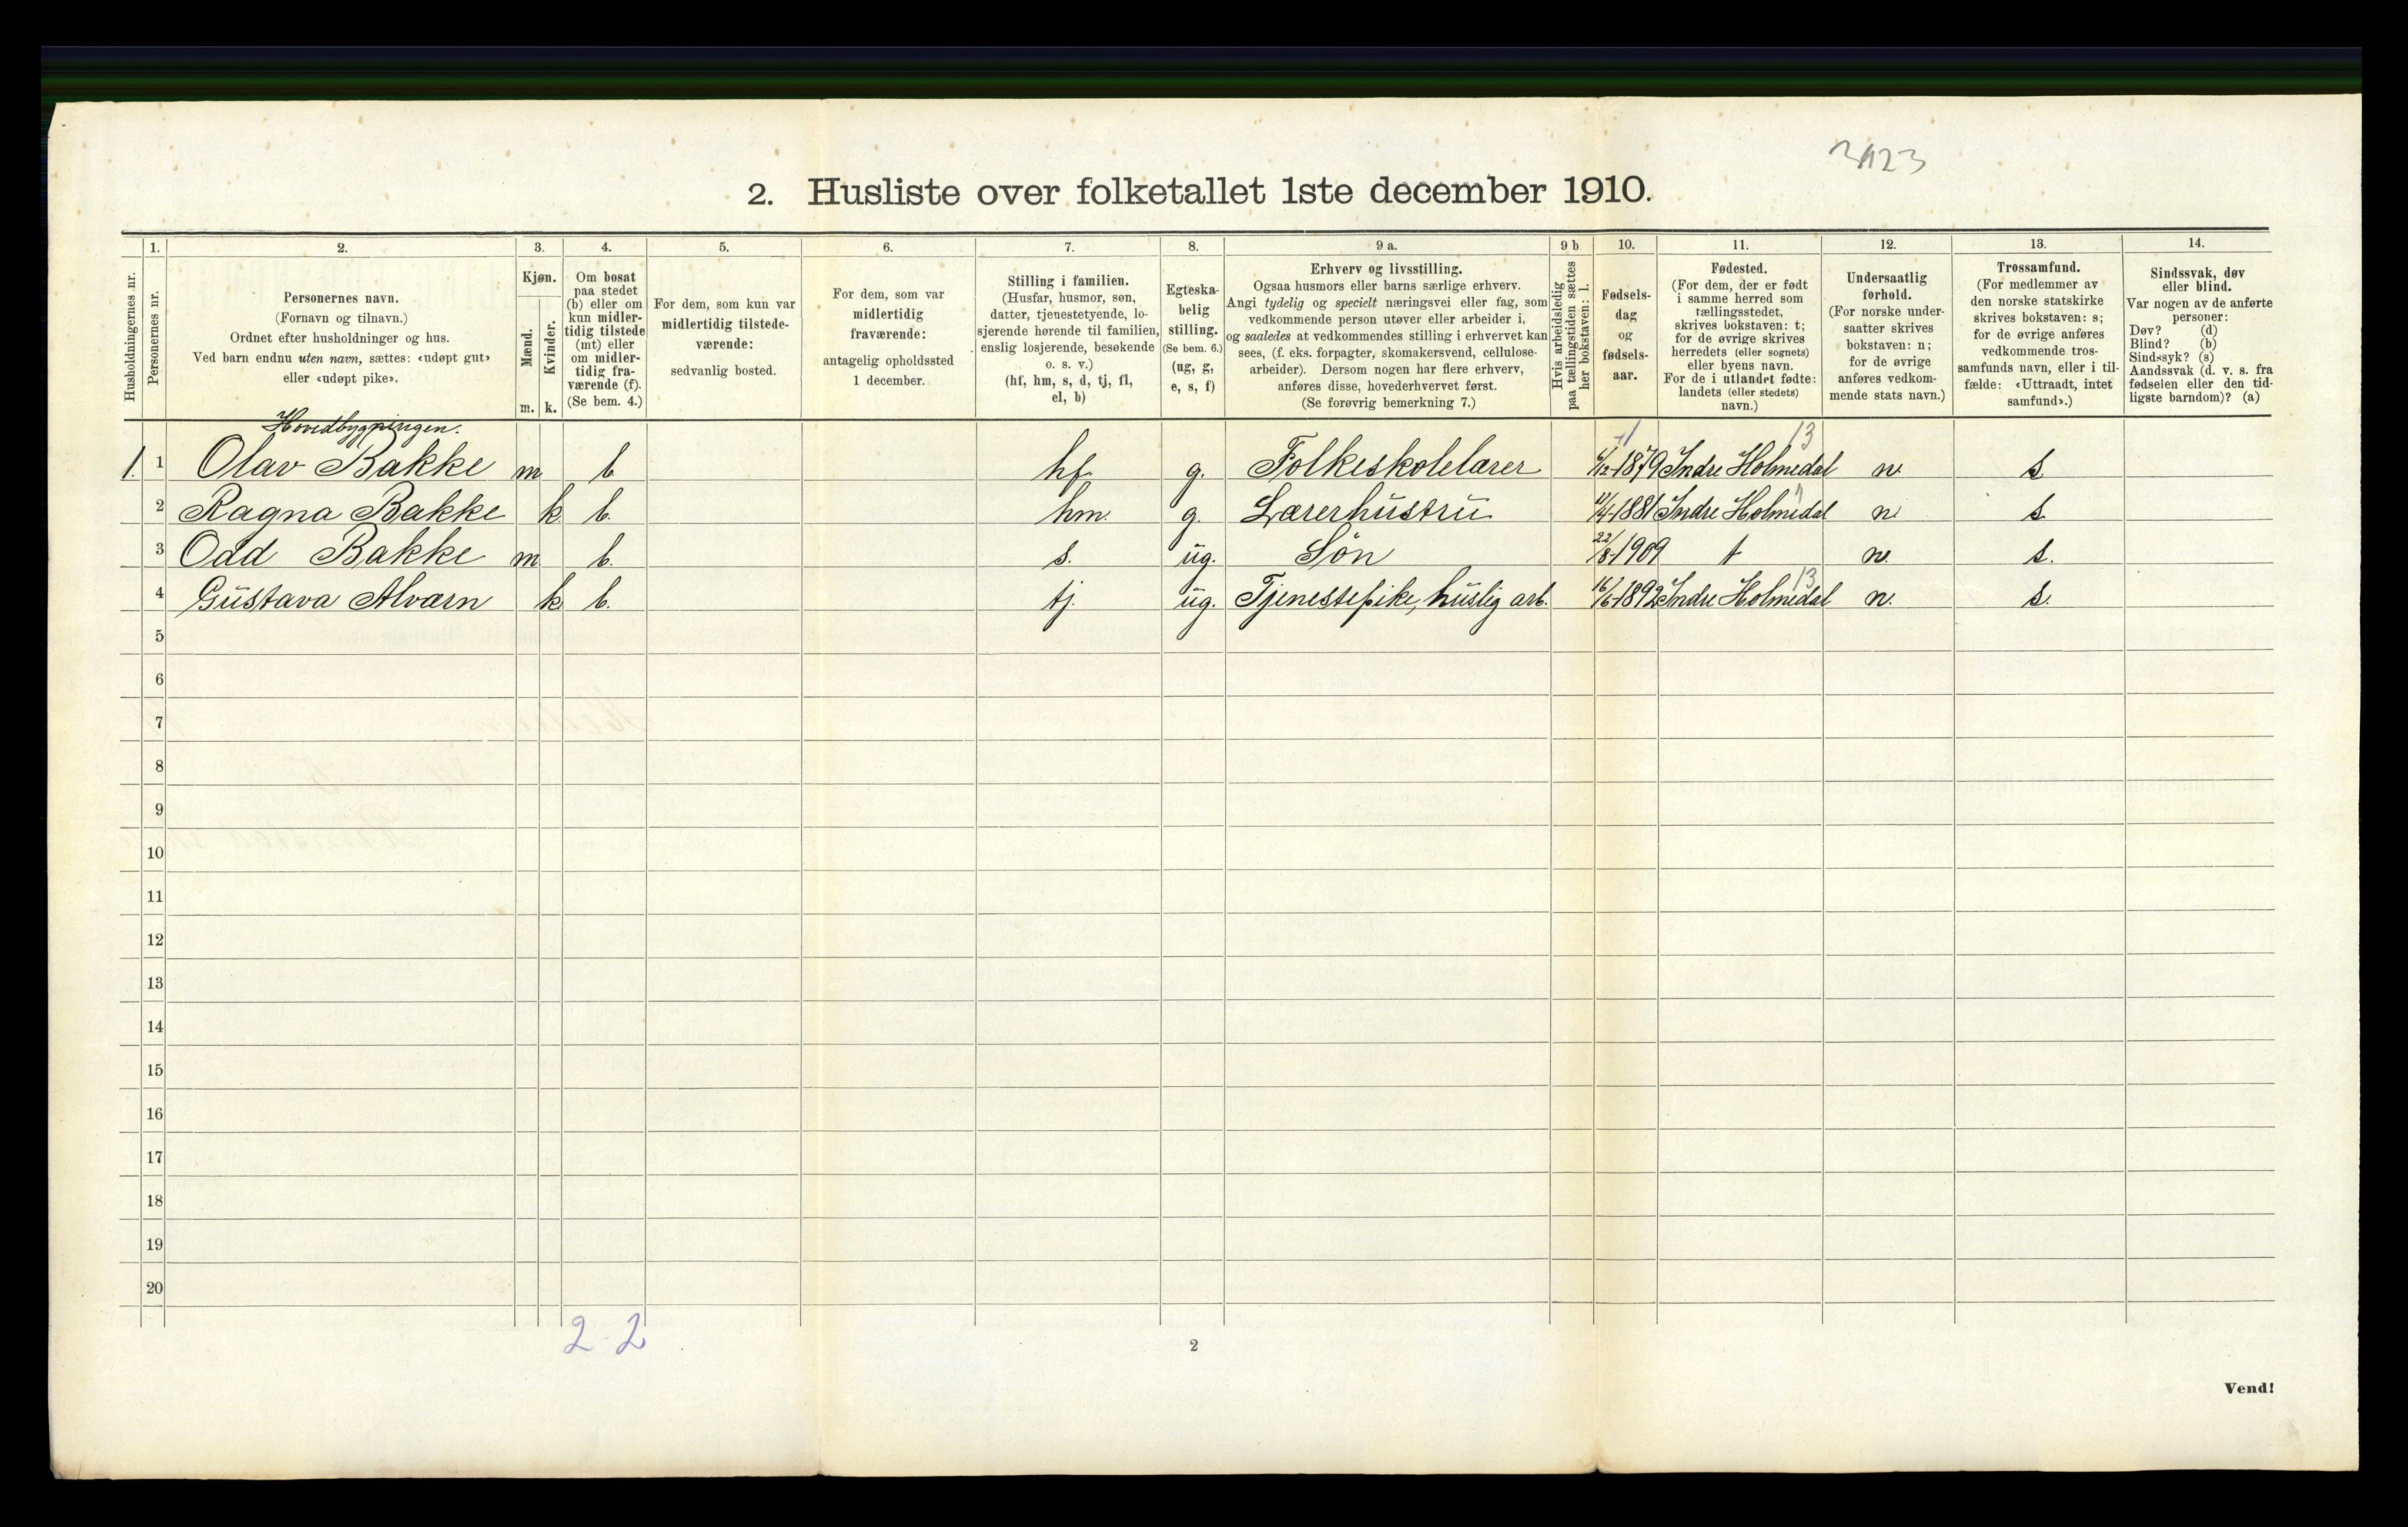 3923
2. Husliste over folketallet 1ste december 1910.
1. 2. 3. 4. 5. 6. 7. 8. 9 a. 9 b 10. 11. 12. 13. 14.
Husholdningernes nr.
Personernes nr.
Personernes navn.
(Fornavn og tilnavn.)
Ordnet efter husholdninger og hus.
Ved barn endnu uten navn, sættes: «udøpt gut»
eller «udøpt pike».
Kjøn.
Mænd.
Kvinder.
m. k.
Om bosat
paa stedet
(b) eller om
kun midler-
tidig tilstede
(mt) eller
om midler-
tidig fra-
værende (f).
(Se bem. 4.)
For dem, som kun var
midlertidig tilstede-
værende:
sedvanlig bosted.
For dem, som var
midlertidig
fraværende:
antagelig opholdssted
1 december.
Stilling i familien.
(Husfar, husmor, søn,
datter, tjenestetyende, lo-
sjerende hørende til familien,
enslig losjerende, besøkende
o. s. v.)
(hf, hm, s, d, tj, fl,
el, b)
Egteska-
belig
stilling.
(Se bem. 6.)
(ug, g,
e, s, f)
Erhverv og livsstilling.
Ogsaa husmors eller barns særlige erhverv.
Angi tydelig og specielt næringsvei eller fag, som
vedkommende person utøver eller arbeider i,
og saaledes at vedkommendes stilling i erhvervet kan
sees, (f. eks. forpagter, skomakersvend, cellulose-
arbeider). Dersom nogen har flere erhverv,
anføres disse, hovederhvervet først.
(Se forøvrig bemerkning 7.)
Hvis arbeidsledig
paa tællingstiden sættes
her bokstaven: l.
Fødsels-
dag
og
fødsels-
aar.
Fødested.
(For dem, der er født
i samme herred som
tællingsstedet,
skrives bokstaven: t;
for de øvrige skrives
herredets (eller sognets)
eller byens navn.
For de i utlandet fødte:
landets (eller stedets)
navn.)
Undersaatlig
forhold.
(For norske under-
saatter skrives
bokstaven: n;
for de øvrige
anføres vedkom-
mende stats navn.)
Trossamfund.
(For medlemmer av
den norske statskirke
skrives bokstaven: s;
for de øvrige anføres
vedkommende tros-
samfunds navn, eller i til-
fælde: «Uttraadt, intet
samfund».)
Sindssvak, døv
eller blind.
Var nogen av de anførte
personer:
Døv? (d)
Blind? (b)
Sindssyk? (s)
Aandssvak (d. v. s. fra
fødselen eller den tid-
ligste barndom)? (a)
Hovedbygningen.
13
1. 1 Olav Bakke m b hf g. Folkeskolelærer 1879 Indre Holmedal n. s
2 Ragna Bakke k b. hm. g. Lærerhustru 1881 Indre Holmedal n s
3 Odd Bakke m b. s. ug. Søn 22/8-1909 t n. s.
13
4 Gustava Alværn k b. tj. ug. Tjenestepike, huslig arb. 16/6-1892 Indre Holmedal n. s.
5
6
7
8
9
10
11
12
13
14
15
16
17
18
19
20
2-2
2
Vend!